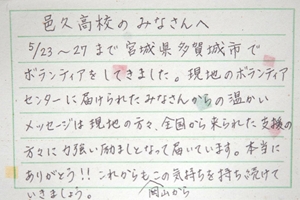 邑久高校のみなさんへ
5/23～27まで宮城県多賀城市で
ボランティアをしてきました。現地のボランティア
センターに届けられたみなさんからの温かい
メッセージは現地の方々、全国から来られた支援の
方々に力強い励ましとなって届いています。本当に
ありがとう!!これからもこの気持ちを持ち続けて
いきましょう。 岡山から